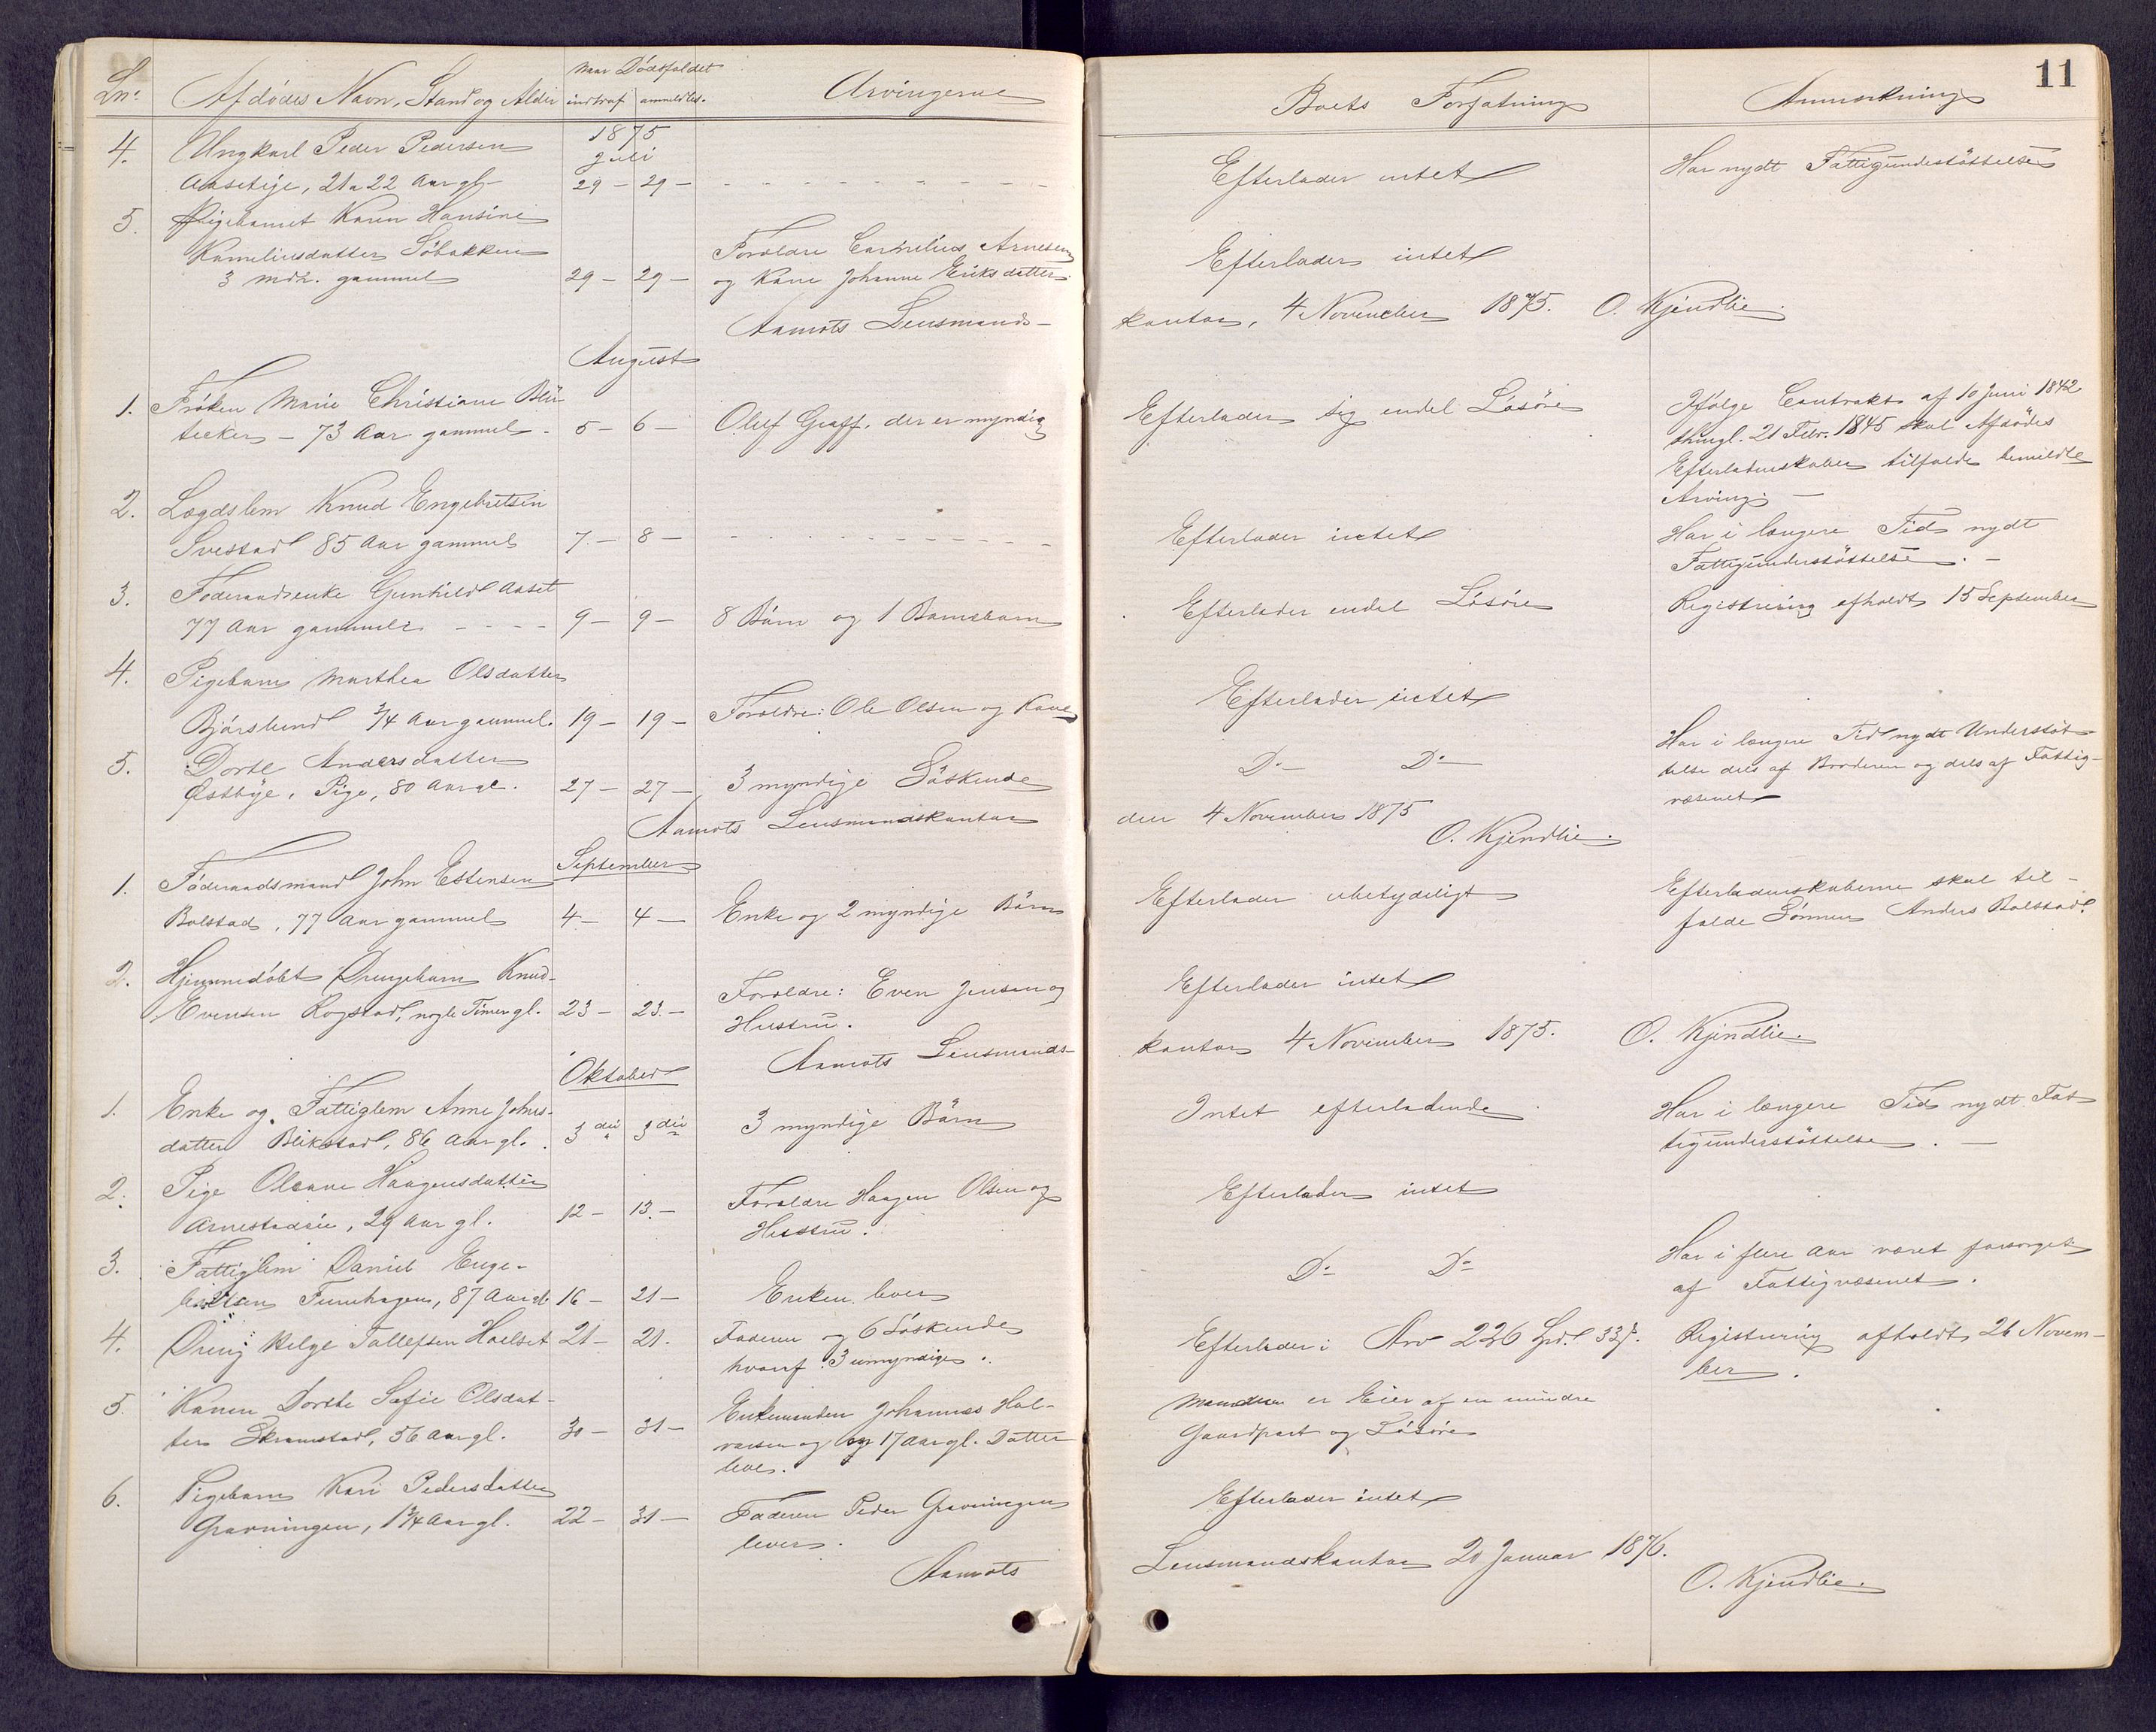 11
Ln. Afdødes Navn, Stand og Alder Naar Dødsfaldet indtraf anmeldtes. Arvingerne Boets Forfatning Anmærkning
1875
Juli
4. Ungkarl Peder Pedersen
Aaseteje, 21 a 22 Aar gl. 29 - 29 - Efterlader intet Har nydt Fattigunderstøttelse
5. Pigebarnet Karen Hansine
Korneliusdatter Søbakken Forældre Cornelius Arnesen
3 mdr. gammel 29 - 29 - og Kone Johanne Eriksdatter Efterlader intet
Aamots Lensmands-
kontor, 4 November 1875. O. Kjendlie.
August
1. Frøken Marie Christiane Blü-
tecker - 73 Aar gammel - 5 - 6 - Oluf Graff, der er myndig Efterlader sig endel Løsøre
Ifølge Contrakt af 10 Juni 1842
thingl. 21 Febr. 1845 skal Afdødes
Efterladenskaber tilfalde bemeldte
Arving. -
2. Lægdslem Knud Engebretsen
Svestad 85 Aar gammel 7 - 8 - Efterlader intet
Har i længere Tid nydt
Fattigunderstøttelse. -
3. Føderaadsenke Gunhild Aaset
77 Aar gammel 9 - 9 - 8 Børn og 1 Barnebarn Efterlader endel Løsøre Registrering afholdt 15 September
4. Pigebarn Marthea Olsdatter
Bjørslund 3/4 Aar gammel. 19 - 19 - Forældre: Ole Olsen og Kone Efterlader intet
5. Dorte Andersdatter
Østbye, Pige, 80 Aar gl. 27 - 27 - 3 myndige Søskende Do Do
Har i længere Tid nydt Understøt-
telse dels af Broderen og dels af Fattig-
væsenet
Aamots Lensmandskontor den 4 November 1875
O. Kjendlie.
September
1. Føderaadsmand John Estensen
Bolstad, 77 Aar gammel 4 - 4 - Enke og 2 myndige Børn Efterlader ubetydeligt
Efterladenskaberne skal til-
falde Sønnen Anders Bolstad.
2. Hjemmedøbt Drengebarn Knud
Evensen Rogstad, nogle Timer gl. 23 - 23. - Forældre: Even Jensen og
Hustru. Efterlader intet
Aamots Lensmands-
kontor 4 November 1875. O. Kjendlie.
Oktober
1. Enke og Fattiglem Anne Johns-
datter Blikstad, 86 Aar gl. 3die 3die 3 myndige Børn Intet efterladende
Har i længere Tid nydt Fat-
tigunderstøttelse. -
2. Pige Oleane Haagensdatter
Arnestadeie, 29 Aar gl. 12 - 13. - Forældre Haagen Olsen og
Hustru. Efterlader intet
3. Fattiglem Daniel Enge-
bretsen Furuhagen, 87 Aar gl. 16 - 21 - Enken lever Do Do
Har i flere Aar været forsørget
af Fattigvæsenet.
4. Dreng Helge Tollefsen Hoelset 21 - 21. Faderen og 6 Søskende
hvoraf 3 umyndige. Efterlader i Arv 226 Spd. 33 s. Registrering afholdt 26 Novem-
ber.
5. Konen Dorthe Sofie Olsdat-
ter Skramstad, 56 Aar gl. 30 - 31 - Enkemanden Johannes Hal-
vorsen og 17 Aar gl. Datter
lever.
Manden er Eier af en mindre
Gaardpart og Løsøre
6. Pigebarn Kari Pedersdatter
Gravningen, 1 3/4 Aar gl. 22 - 31 - Faderen Peder Gravningen
lever. Efterlader intet
Aamots Lensmandskontor 20 Januar 1876.
O. Kjendlie.